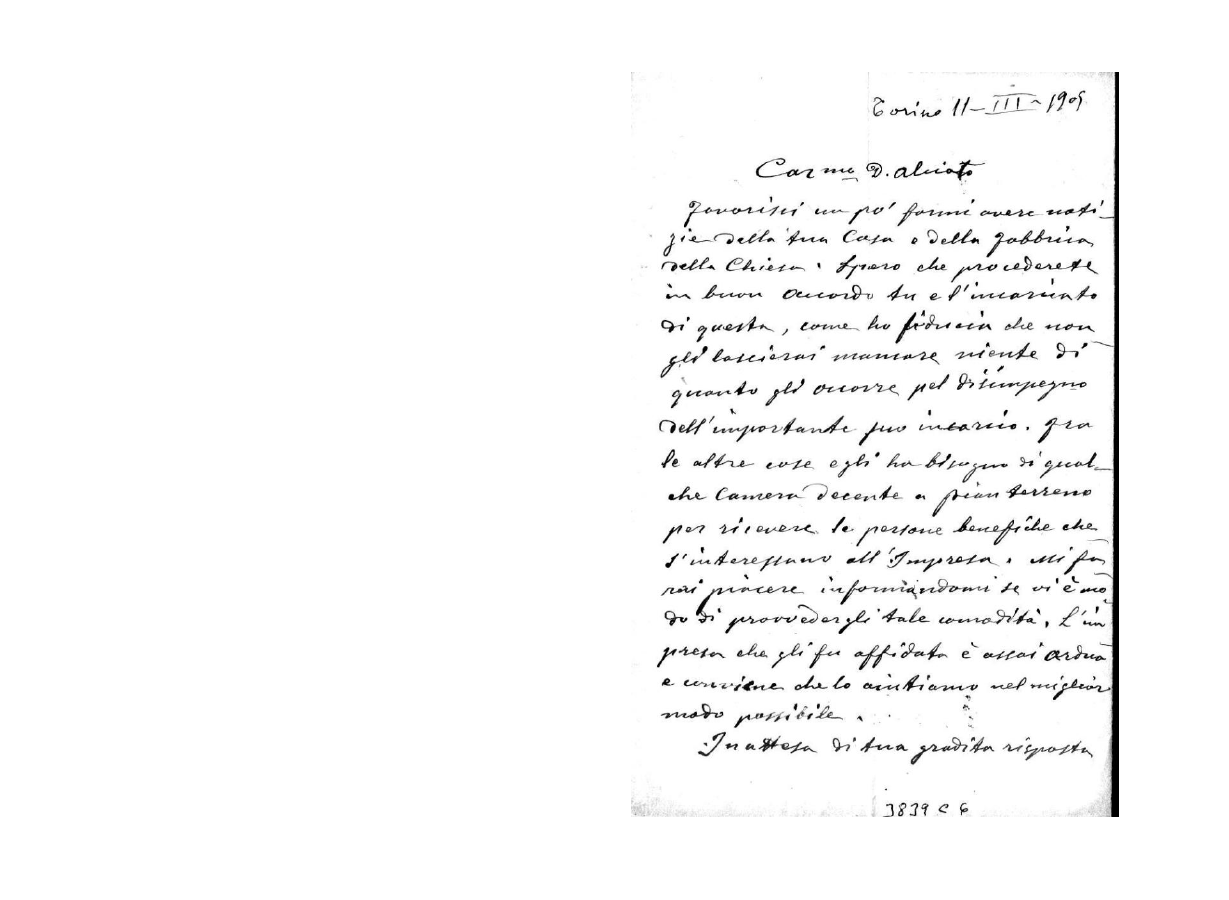 Torino 11-III-1905
Car.mo D. Alviato
Favorisci un po' farmi avere noti-
zie della tua Casa e della fabbrica
della Chiesa. Spero che procederete
in buon accordo tu e l'incaricato
di questa, come ho fiducia che non
gli lascierai mancare niente di
quanto gli occorre pel disimpegno
dell'importante suo incarico. Fra
le altre cose egli ha bisogno di qual-
che Camera decente a pian terreno
per ricevere le persone benefiche che
s'interessano all'Impresa. Mi fa-
rai piacere informandomi se vi è mo
do di provvedergli tale comodità. L'im
presa che gli fu affidata è assai ardua
e conviene che lo aiutiamo nel miglior
modo possibile.
In attesa di tua gradita risposta
3839 C 6